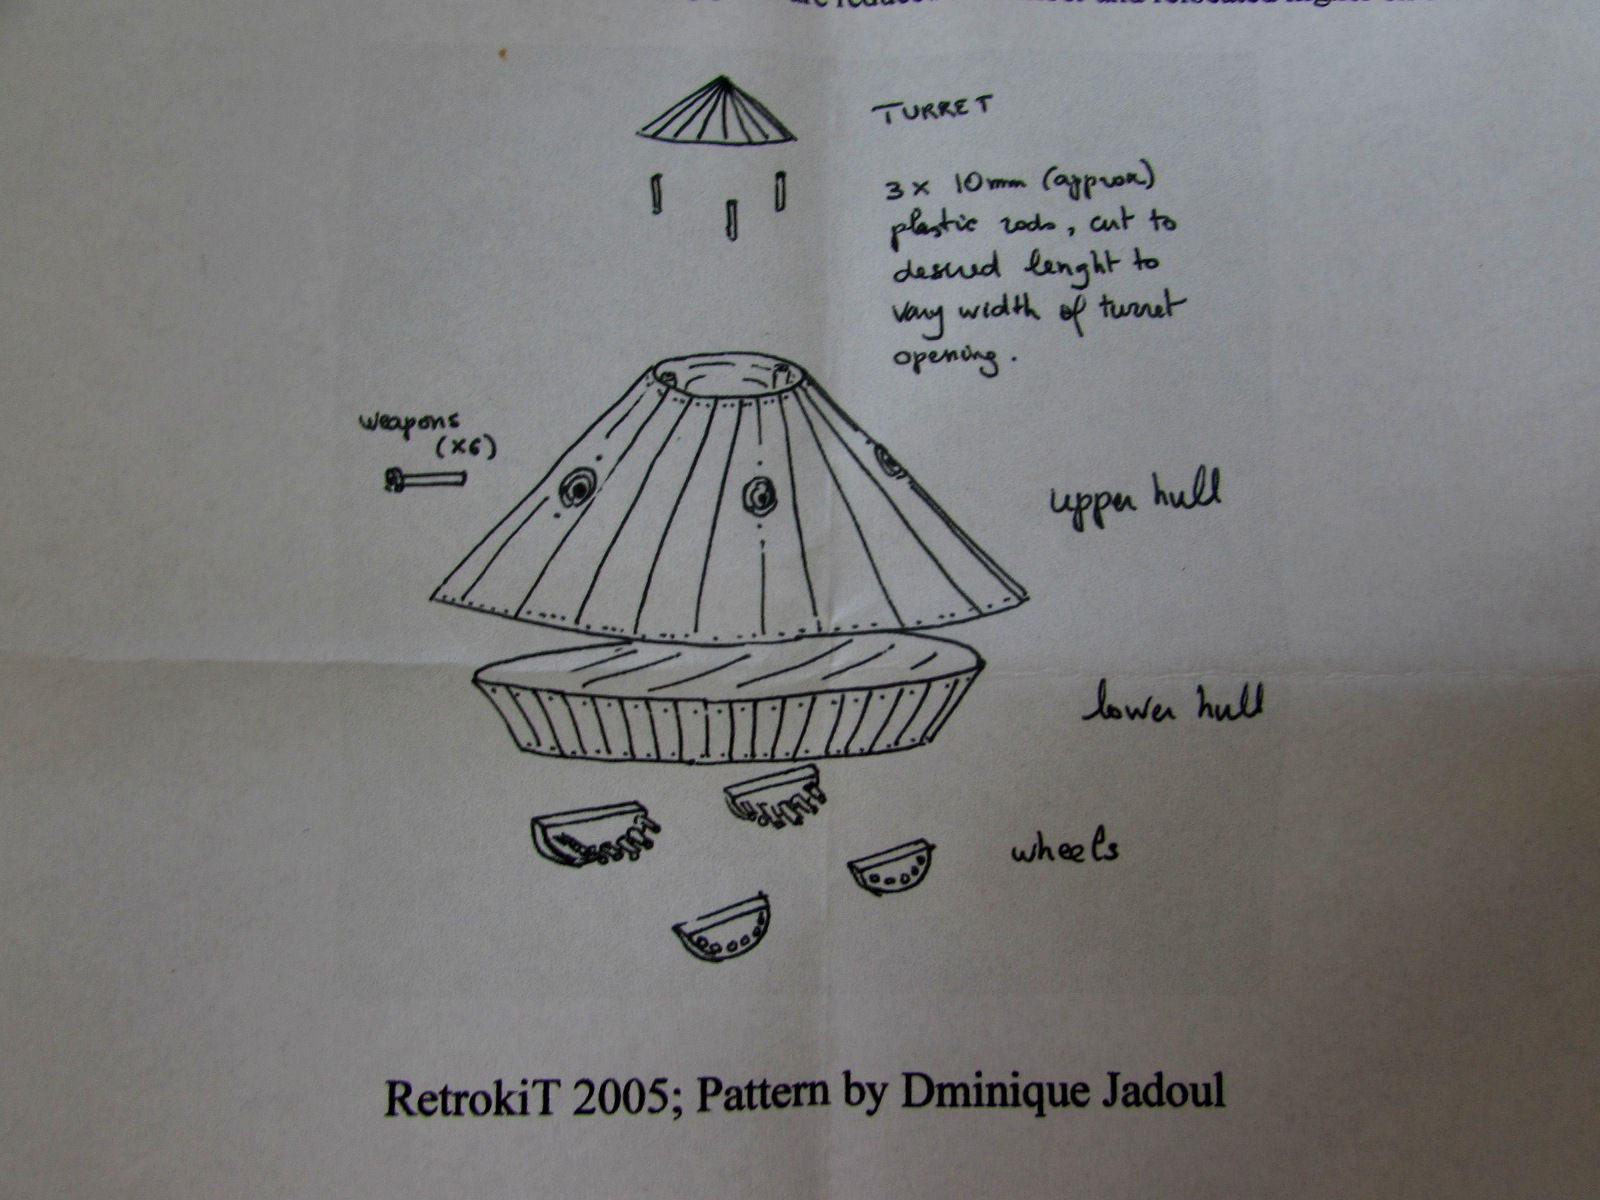 and relocated higher on
TURRET
3 x 10mm (approx)
plastic rods, cut to
desired lenght to
vary width of turret
opening.
weapons
(x6)
upper hull
lower hull
wheels
RetrokiT 2005; Pattern by Dminique Jadoul